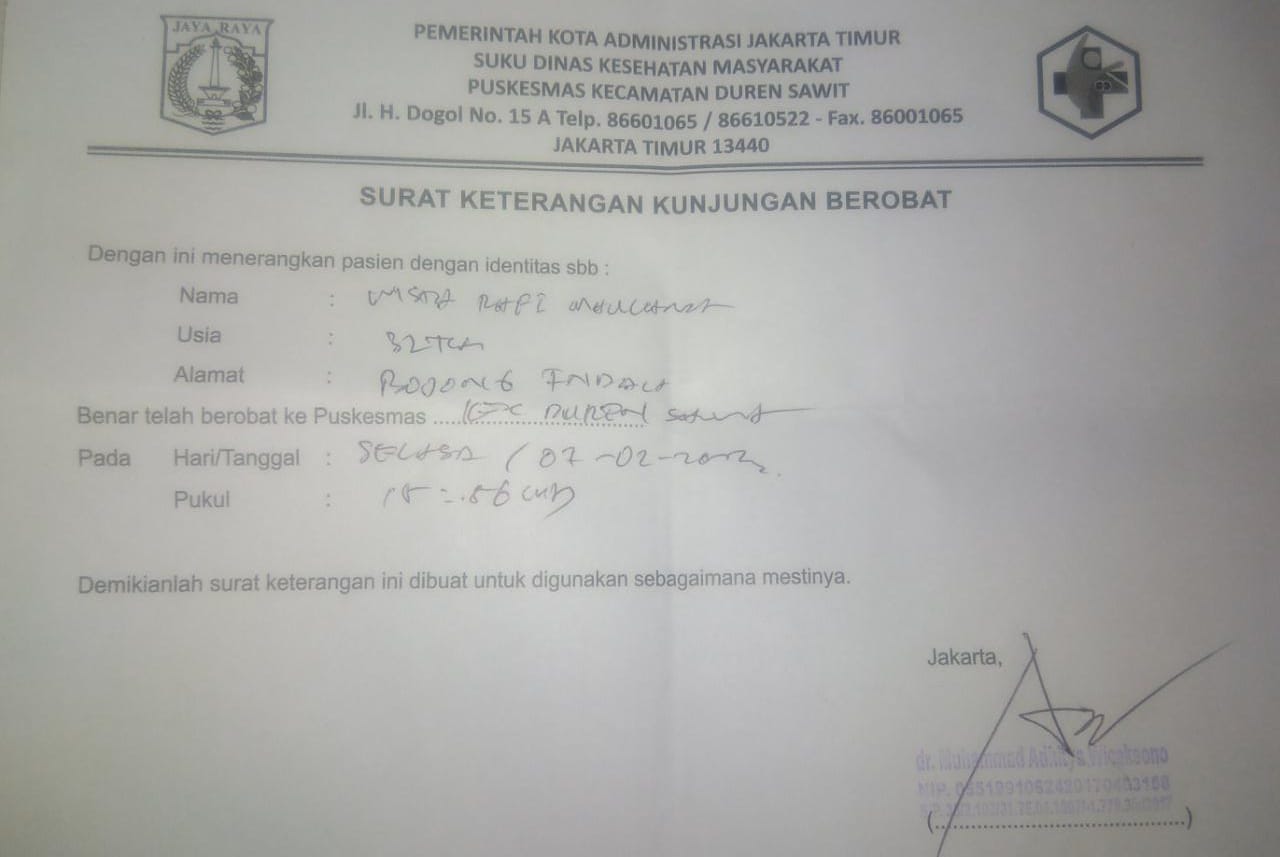 JAYA RAYA
PEMERINTAH KOTA ADMINISTRASI JAKARTA TIMUR
SUKU DINAS KESEHATAN MASYARAKAT
PUSKESMAS KECAMATAN DUREN SAWIT
Jl. H. Dogol No. 15 A Telp. 86601065 / 86610522 - Fax. 86001065
JAKARTA TIMUR 13440
SURAT KETERANGAN KUNJUNGAN BEROBAT
Dengan ini menerangkan pasien dengan identitas sbb :
Nama : RAFI MAULANA
Usia : 32 TH
Alamat : BOJONG INDAH
Benar telah berobat ke Puskesmas ..... KEC DUREN Sawit
Pada Hari/Tanggal : SELASA / 07-02-
Pukul :
Demikianlah surat keterangan ini dibuat untuk digunakan sebagaimana mestinya.
Jakarta,
dr. Muhammad Wicaksono
NIP.
(..........................................)